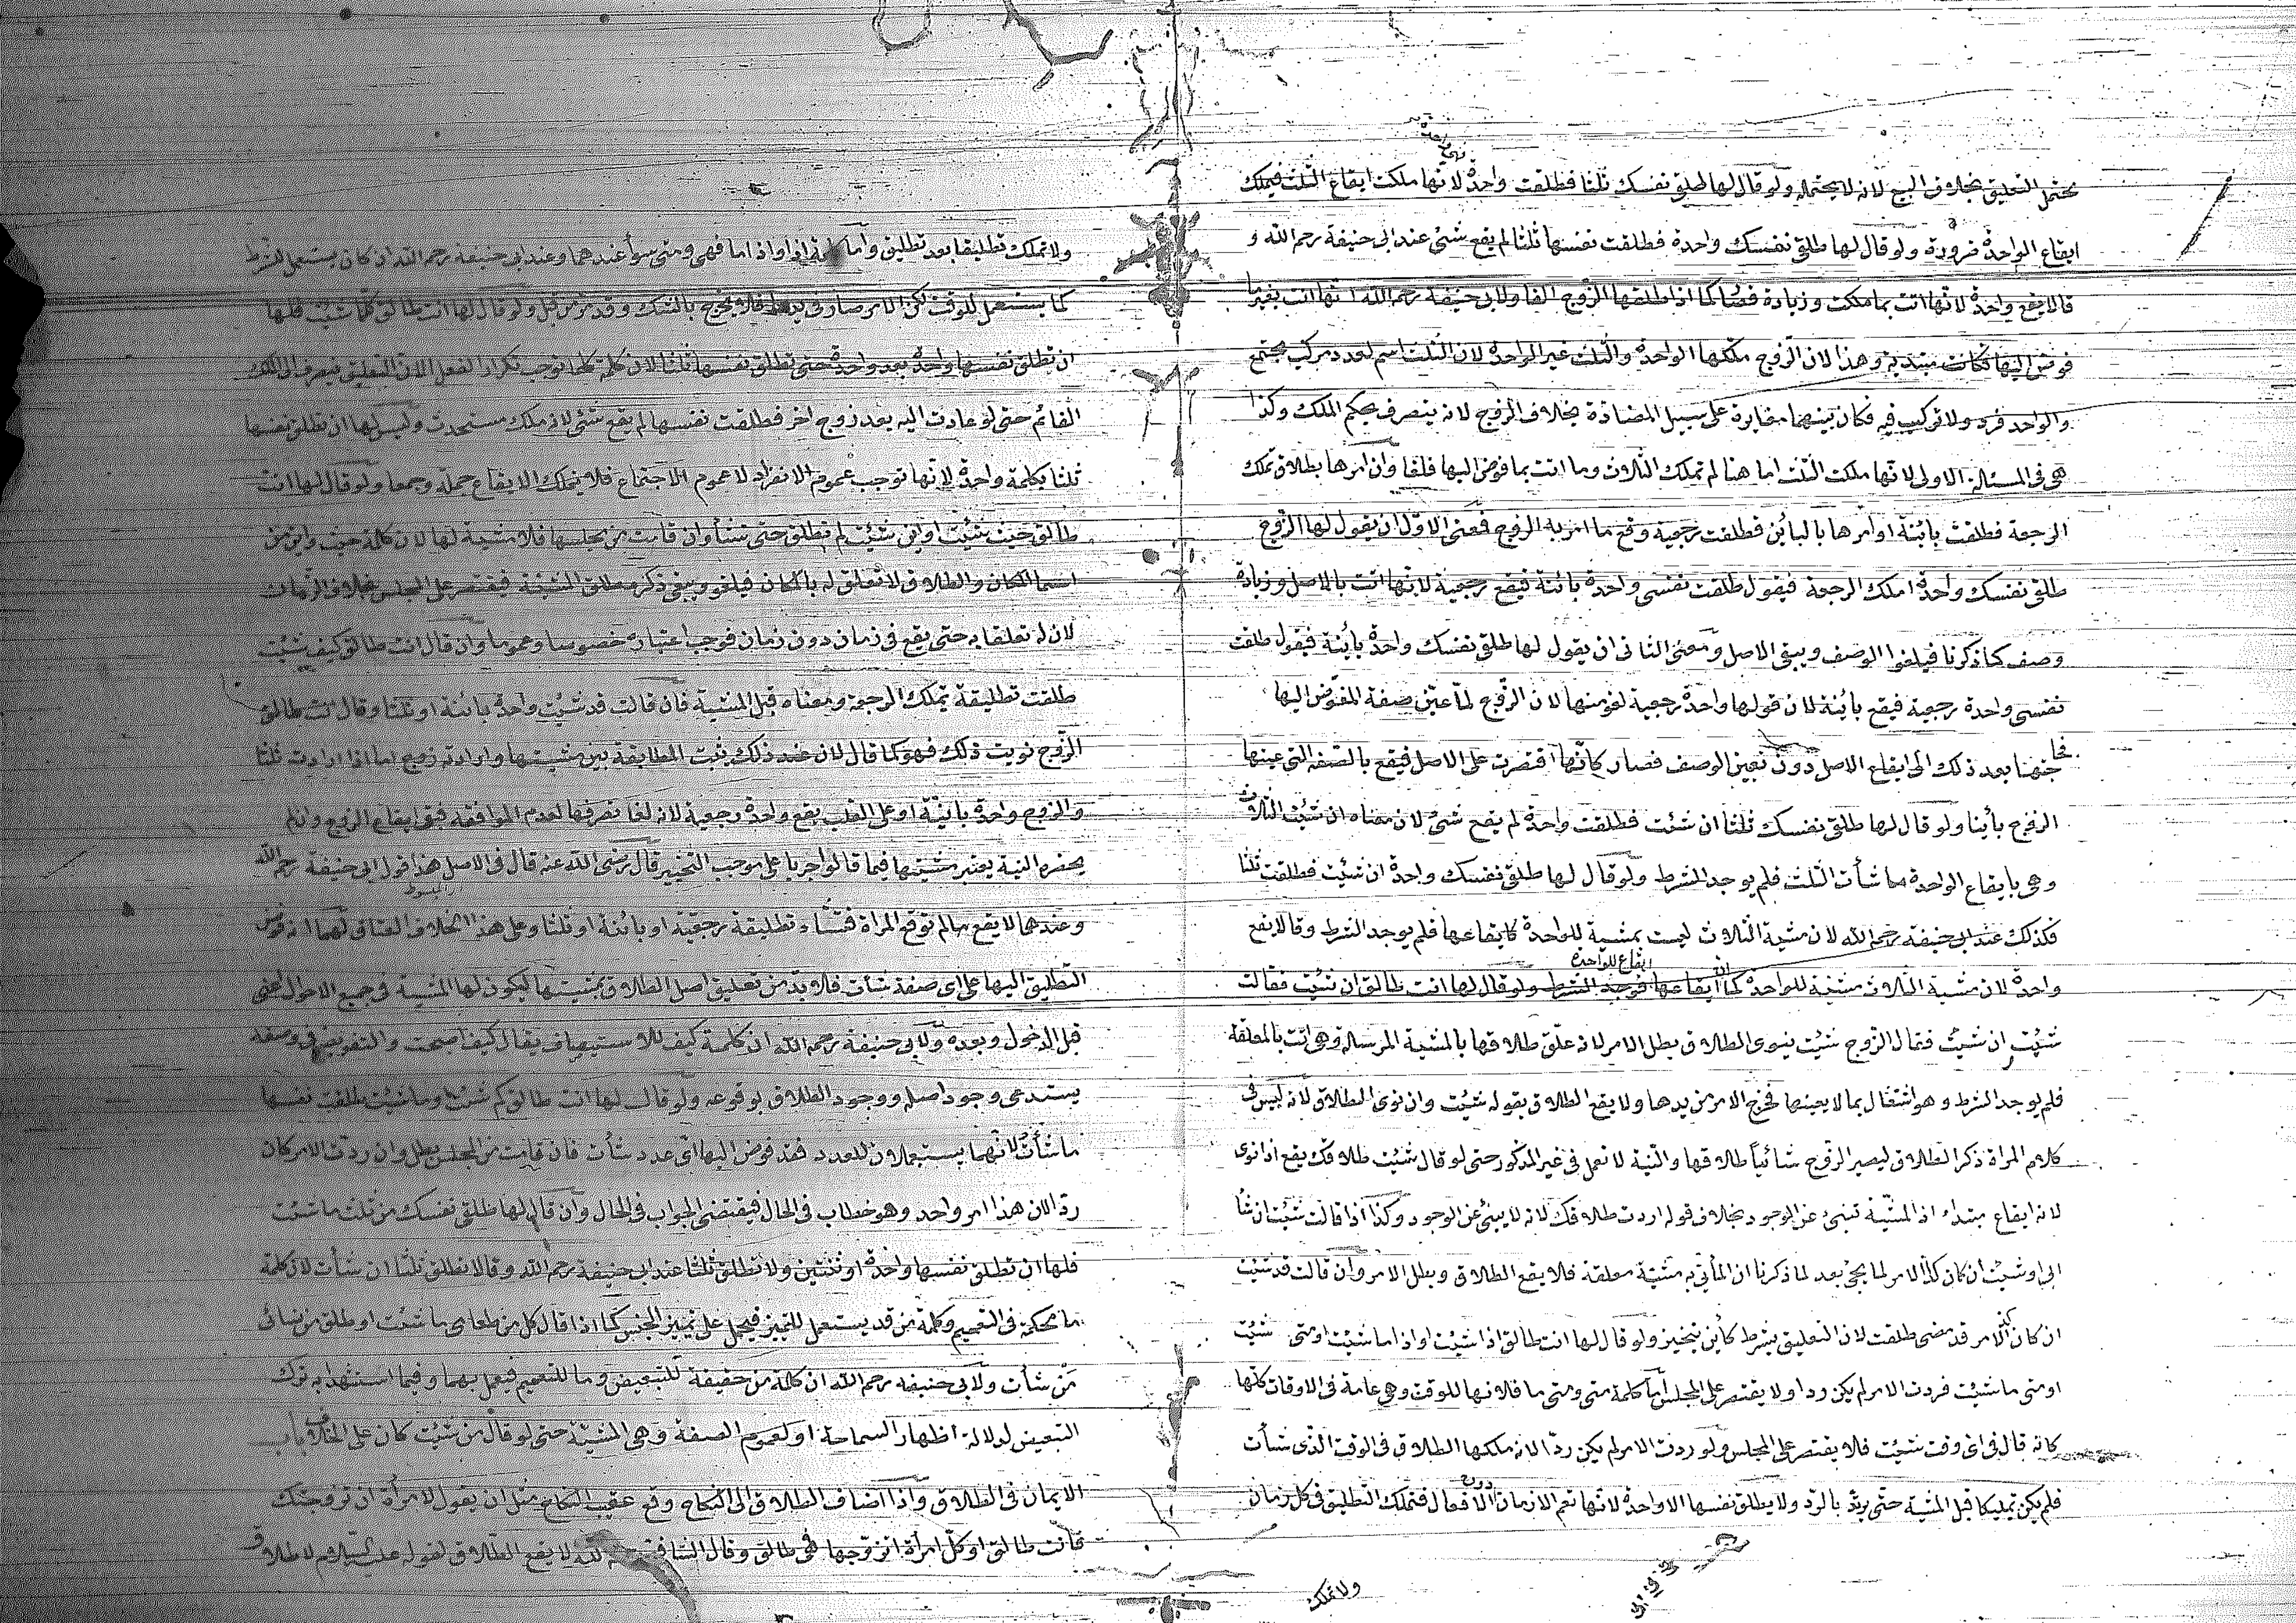 يحتمل التعليق بخلاف البيع لانه لا يحتمله ولو قال لها طلقى نفسك ثلثا فطلقت واحدة لانها ملكت ايقاع الثلث فيملك
ايقاع الواحدة ضرورة ولو قال لها طلقى نفسك واحدة فطلقت نفسها ثلثا لم يقع شئ عند ابى حنيفة رحم الله و
قالا يقع واحدة لانها اتت بما ملكت وزيادة فصار كما اذا طلقها الزوج الفا ولابى حنيفة رحم الله انها اتت بغير ما
فوض اليها فكانت مبتدية وهذا لان الزوج ملكها الواحدة والثلث غير الواحدة لان الثلث اسم لعدد مركب مجتمع
والواحد فرد ولا تركيب فيه فكان بينهما مغايرة على سبيل المضادة بخلاف الزوج لانه يتصرف بحكم الملك وكذا
هى فى المسئلة الاولى لانها ملكت الثلث اما هنا لم تملك الثلاث وما اتت بما فوض اليها فلغا وان امرها بطلاق تملك
الرجعة فطلقت بائنة او امرها بالبائن فطلقت رجعية وقع ما امر به الزوج فمعنى الاول ان يقول لها الزوج
طلقى نفسك واحدة املك الرجعة فيقول طلقت نفسى واحدة بائنة فيقع رجعية لانها اتت بالاصل وزيادة
وصف كما ذكرنا فيلغوا الوصف ويبقى الاصل ومعنى الثانى ان يقول لها طلقى نفسك واحدة بائنة فيقول طلقت
نفسى واحدة رجعية فيقع بائنة لان قولها واحدة رجعية لغو منها لان الزوج لما عين صفة المفوض اليها
فحاجتها بعد ذلك الى ايقاع الاصل دون تعيين الوصف فصار كانها اقتصرت على الاصل فيقع بالصفة التى عينها
الزوج بأينا ولو قال لها طلقى نفسك ثلثا ان شئت فطلقت واحدة لم يقع شئ لان معناه ان شئت الثلاث
وهى بايقاع الواحدة ما شأت الثلث فلم يوجد الشرط ولو قال لها طلقى نفسك واحدة ان شئت فطلقت ثلثا
فكذلك عند ابى حنيفة رحم الله لان مشية الثلاث ليست بمشية للواحدة كايقاعها فلم يوجد الشرط وقالا يقع
واحدة لان مشية الثلاث مشية للواحدة كما ان ايقاعها ايقاع للواحدة فوجد الشرط ولو قال لها انت طالق ان شئت فقالت
شئت ان شئت فقال الزوج شئت ينوى الطلاق بطل الامر لانه علق طلاقها بالمشية المرسلة وهى اتت بالمعلقة
فلم يوجد الشرط وهو اشتغال بما لا يعينها فخرج الامر من يدها ولا يقع الطلاق بقوله شئت وان نوى الطلاق لانه ليس فى
كلام المراة ذكر الطلاق ليصير الزوج شائيا طلاقها والنية لا تعمل فى غير المذكور حتى لو قال شئت طلاقك يقع اذا نوى
لانه ايقاع مبتداء اذ المشية تنبئ عن الوجود بخلاف قوله اردت طلاقك لانه لا ينبئ عن الوجود وكذا اذا قالت شئت ان شأ
ابى او شئت ان كان كذا الامر لما يجئ بعد لما ذكرنا ان المأتى به مشية معلقة فلا يقع الطلاق وبطل الامر وان قالت قد شئت
ان كان كذا الامر قد مضى طلقت لان التعليق بشرط كائن تنجيز ولو قال لها انت طالق اذا شئت واذا ما شئت او متى شئت
او متى ما شئت فردت الامر لم يكن ردا ولا يقتصر على المجلس اما كلمة متى ومتى ما فلانها للوقت وهى عامة فى الاوقات كلها
كانه قال فى اى وقت شئت فلا يقتصر على المجلس ولو ردت الامر لم يكن ردا لانه ملكها الطلاق فى الوقت الذى شأت
فلم يكن تمليكا قبل المشية حتى يرتد بالرد ولا يطلق نفسها الا واحدة لانها تعم الازمان دون الافعال فتملك التطليق فى كل زمان
ولا تملك
ولا تملك تطليقا بعد تطليق واما كلمة اذا واذا ما فهى ومتى سوأ عندهما وعند ابى حنيفة رحم الله ان كان يستعمل للشرط
كما يستعمل للوقت لكن الامر صار فى يدها فلا يخرج بالشك وقد مر من قبل ولو قال لها انت طالق كلما شئت فلها
ان تطلق نفسها واحدة بعد واحدة حتى تطلق نفسها ثلثا لان كلمة كلما توجب تكرار الفعل الا ان التعليق ينصرف الى الملك
القائم حتى لو عادت اليه بعد زوج اخر فطلقت نفسها لم يقع شئ لانه ملك مستحدث وليس لها ان تطلق نفسها
ثلثا بكلمة واحدة لانها توجب عموم الانفراد لا عموم الاجتماع فلا تملك الايقاع جملة وجمعا ولو قال لها انت
طالق حيث شئت او اين شئت لم تطلق حتى تشأ وان قامت من مجلسها فلا مشية لها لان كلمة حيث واين من
اسما المكان والطلاق لا تعلق له بالمكان فيلغو ويبقى ذكر مطلق المشية فيقتصر على المجلس بخلاف الزمان
لان له تعلقا به حتى يقع فى زمان دون زمان فوجب اعتباره خصوصا وعموما وان قال انت طالق كيف شئت
طلقت تطليقة يملك الرجعة ومعناه قبل المشية فان قالت قد شئت واحدة بائنة او ثلثا وقال
الزوج نويت ذلك فهو كما قال لان عند ذلك يثبت المطابقة بين مشيتها وارادته اما اذا ارادت ثلثا
والزوج واحدة بائنة او على القلب يقع واحدة رجعية لانه لغا تصرفها لعدم الموافقة فبقى ايقاع الزوج وان لم
يحضره النية يعتبر مشيتها فيما قالوا جريا على موجب التخيير قال رضى الله عنه قال فى الاصل هذا قول ابى حنيفة رحم الله
المبسوط
وعندهما لا يقع ما لم توقع المراة فتشأ تطليقة رجعية او بائنة او ثلثا وعلى هذا الخلاف العتاق لهما انه فوض
التطليق اليها على اى صفة شأت فلا بد من تعليق اصل الطلاق بمشيتها ليكون لها المشية فى جميع الاحوال اعنى
قبل الدخول وبعده ولابى حنيفة رحمه الله ان كلمة كيف للاستيصاف يقال كيف اصبحت والتفويض فى وصفه
يستدعى وجود اصله ووجود الطلاق بوقوعه ولو قال لها انت طالق كم شئت او ما شئت طلقت نفسها
ما شأت لانهما يستعملان للعدد فقد فوض اليها اى عدد شأت فان قامت من المجلس بطل وان ردت الامر كان
ردا لان هذا امر واحد وهو خطاب فى الحال فيقتضى الجواب فى الحال وان قال لها طلقى نفسك من ثلث ما شئت
فلها ان تطلق نفسها واحدة او ثنتين ولا تطلق ثلثا عند ابى حنيفة رحم الله وقالا تطلق ثلثا ان شأت لان كلمة
ما محكمة فى التعميم وكلمة من قد يستعمل للتمييز فيحمل على تمييز الجنس كما اذا قال كل من طعامى ما شئت او طلق من نسائى
من شأت ولابى حنيفه رحم الله ان كلمة من حقيقة للتبعيض وما للتعميم فيعمل بهما وفيما استشهد به ترك
التبعيض لدلالة اظهار السماحة او لعموم الصفة وهى المشية حتى لو قال من شئت كان على الخلاف باب
الايمان فى الطلاق واذا اضاف الطلاق الى النكاح وقع عقيب النكاح مثل ان يقول لامرأة ان تزوجتك
فانت طالق او كل امرأة اتزوجها فهى طالق وقال الشافعى رحم الله لا يقع الطلاق لقوله عليه السلام لا طلاق